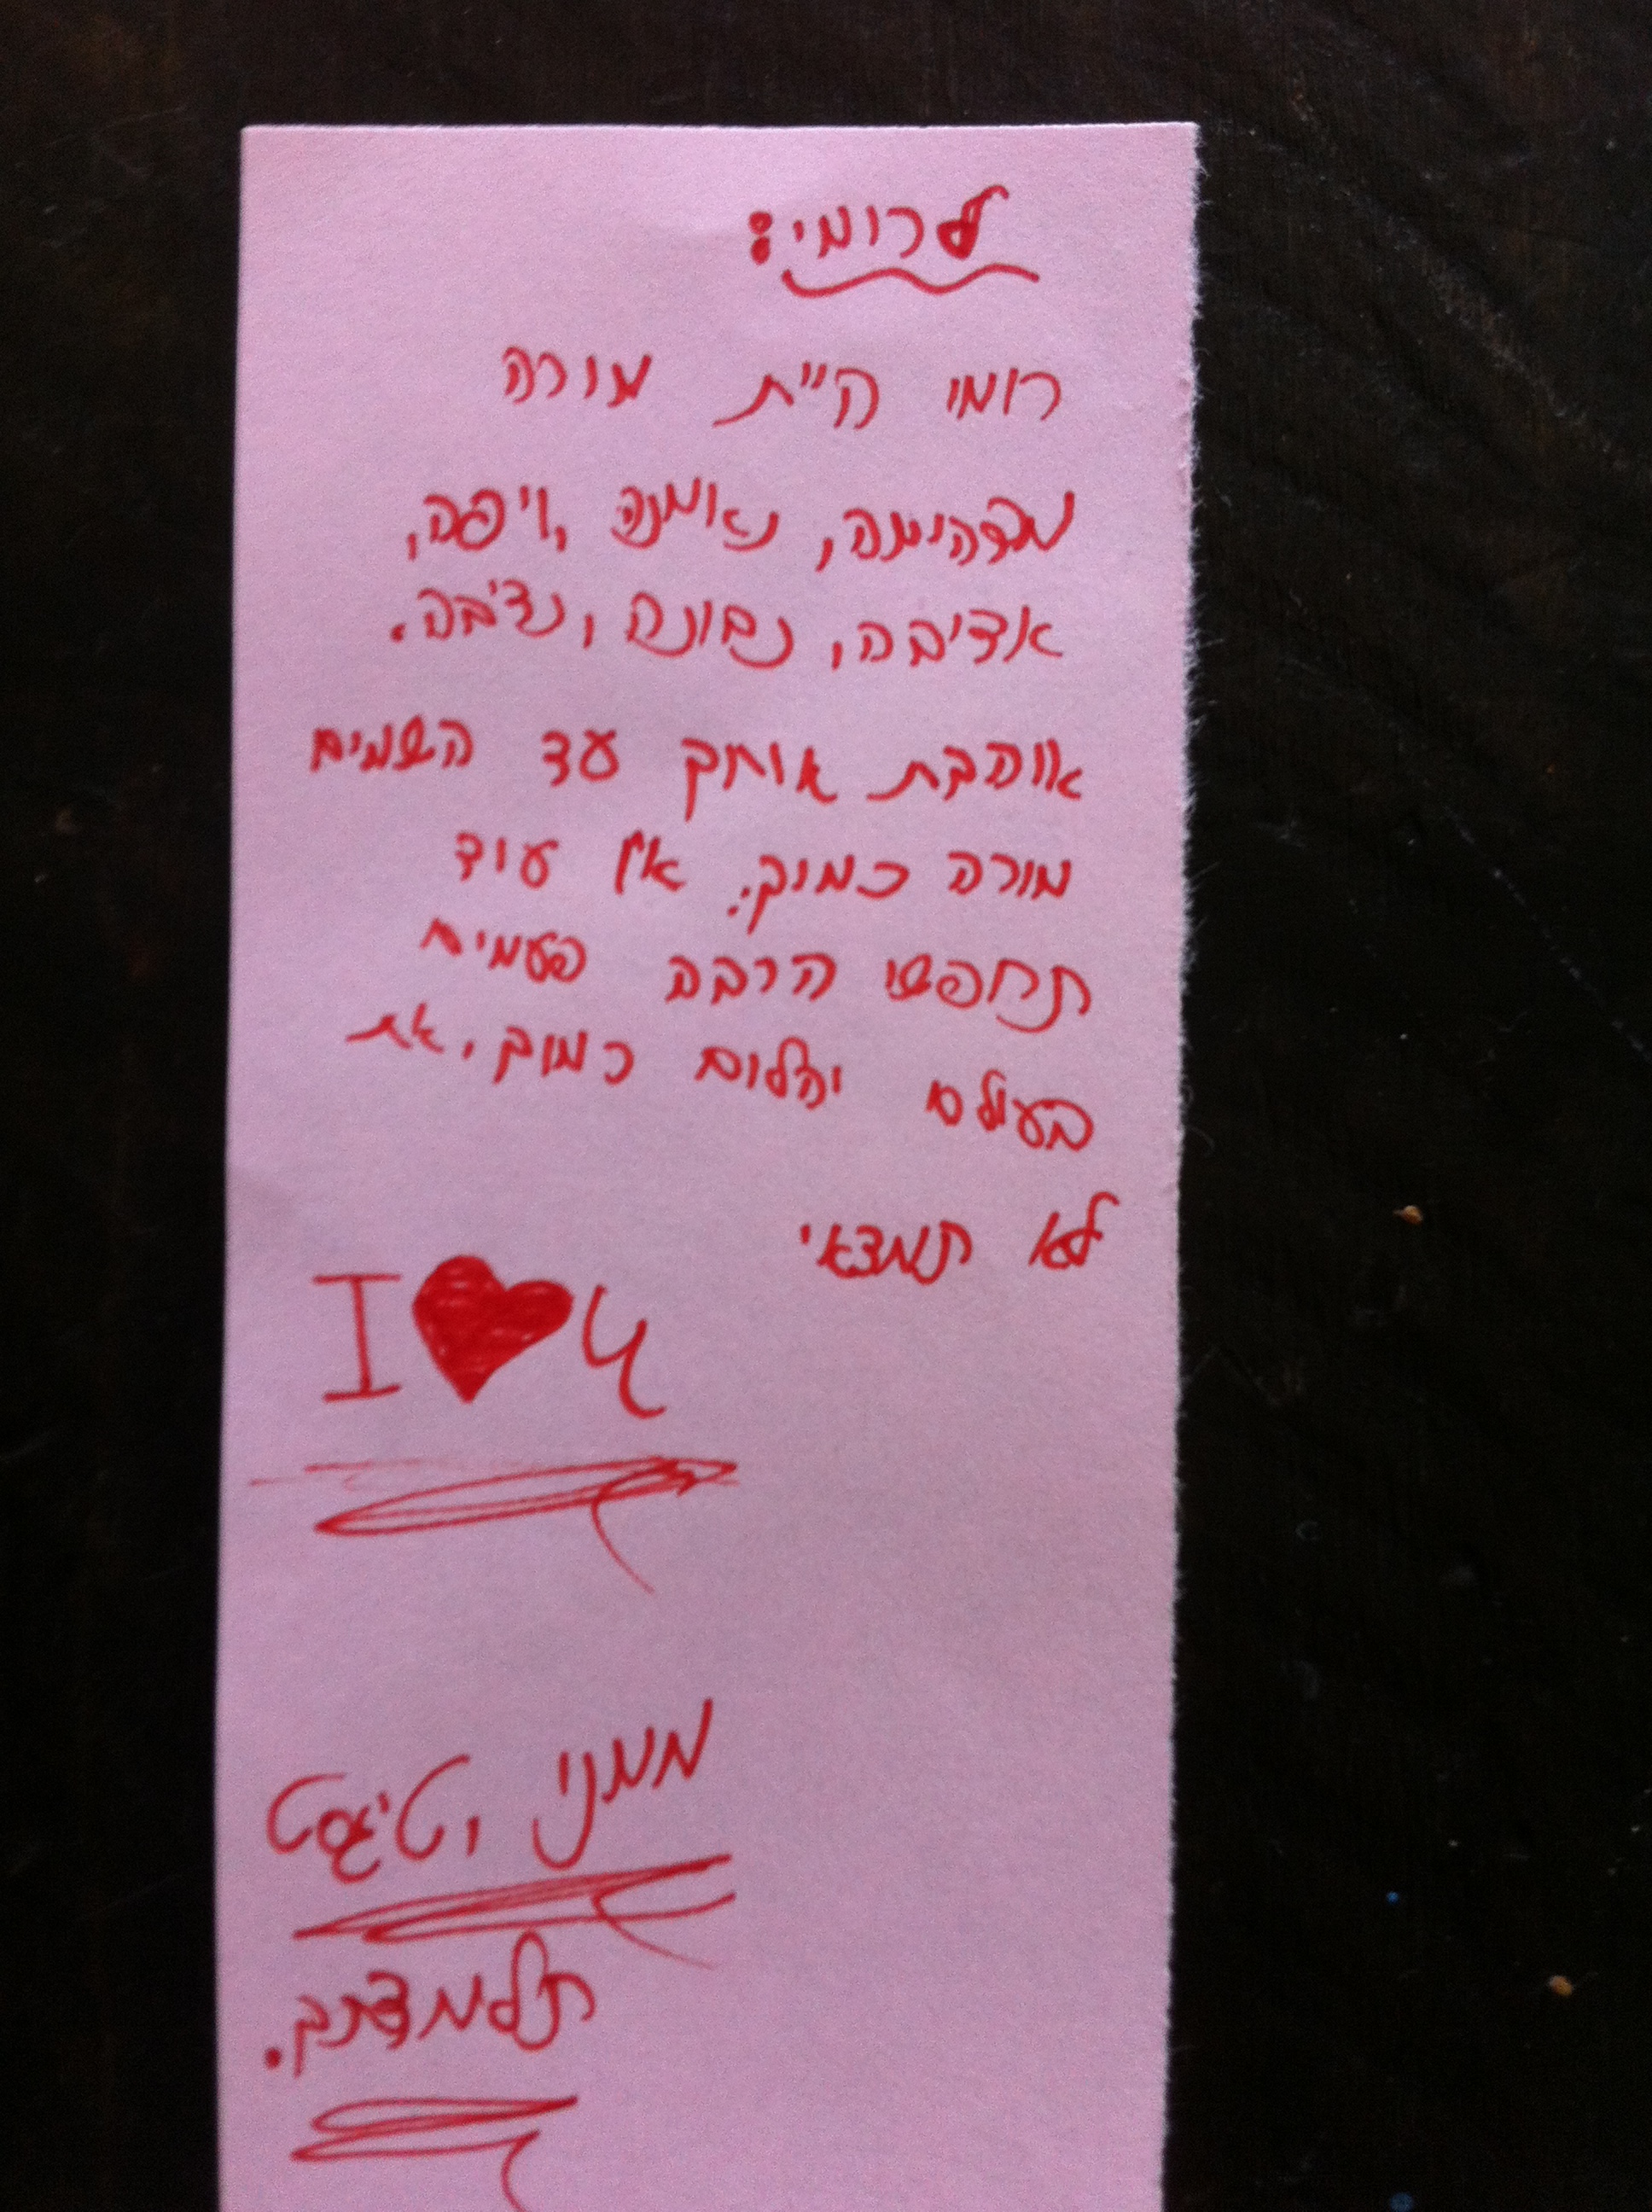 לרומי:
רומי היית מורה
מדהימה, נאמנה, ויפה,
אדיבה, נבונה, נדיבה.
אוהבת אותך עד השמים
מורה כמוך. אין עוד
תחפשי הרבה פעמים
בעולם יהלום כמוך, את
לא תמצאי
I ♥ y
ממני,
תלמדתך.